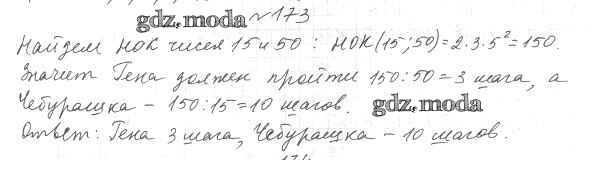 gdz.moda №173
Найдем НОК чисел 15 и 50 : НОК(15;50)=2·3·5²=150.
Значит Гена должен пройти 150:50=3 шага, а
Чебурашка – 150:15=10 шагов. gdz.moda
Ответ: Гена 3 шага, Чебурашка – 10 шагов.